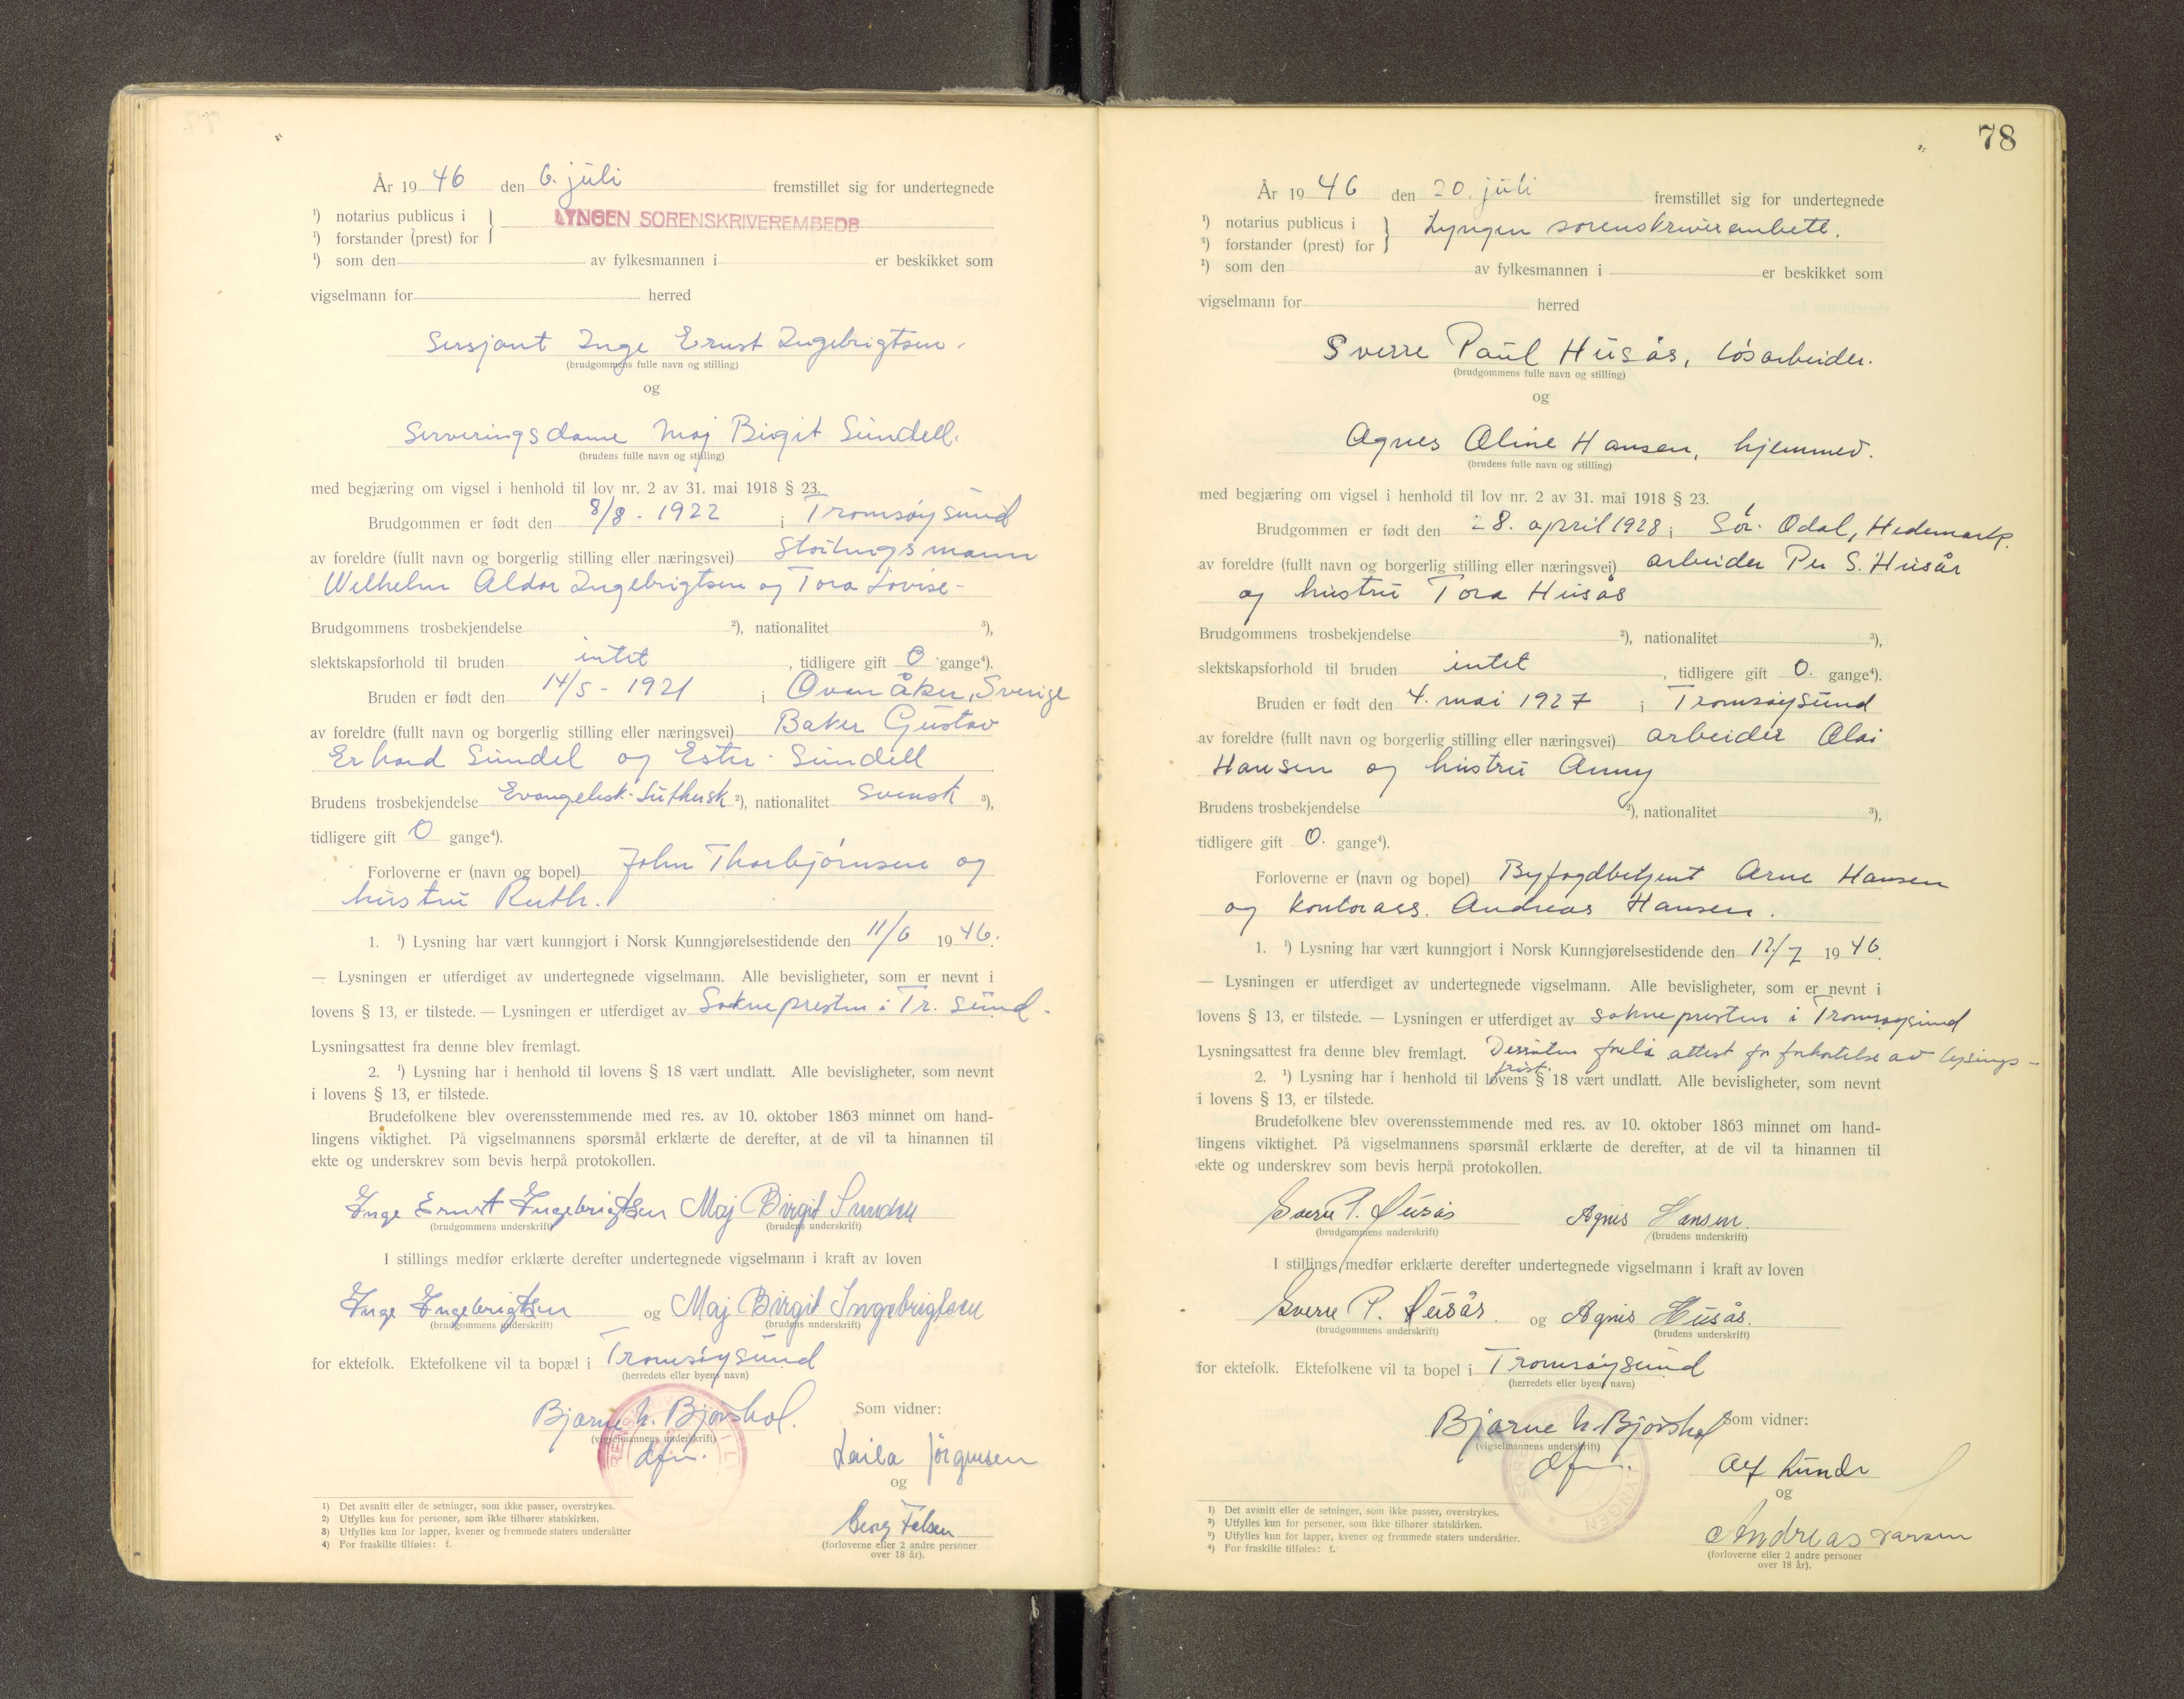 År 1946 den 6. juli fremstillet sig for undertegnede
¹) notarius publicus i } LYNGEN SORENSKRIVEREMBEDE
¹) forstander (prest) for
¹) som den av fylkesmannen i er beskikket som
vigselmann for herred
Sersjant Inge Ernst Ingebrigtsen.
(brudgommens fulle navn og stilling)
og
Serveringsdame Maj Birgit Sundell.
(brudens fulle navn og stilling)
med begjæring om vigsel i henhold til lov nr. 2 av 31. mai 1918 § 23.
Brudgommen er født den 8/8 - 1922 i Tromsøysund
av foreldre (fullt navn og borgerlig stilling eller næringsvei)
Wilhelm Aldor Ingebrigtsen og Tora Lovise -
Brudgommens trosbekjendelse ²), nationalitet ³),
slektskapsforhold til bruden intet, tidligere gift 0 gange⁴).
Bruden er født den 14/5 - 1921 i Ovanåker, Sverige
av foreldre (fullt navn og borgerlig stilling eller næringsvei) Baker Gustav
Erhard Sundel og Ester Sundell
Brudens trosbekjendelse Evangelisk-Luthersk ²), nationalitet Svensk ³),
tidligere gift 0 gange⁴).
Forloverne er (navn og bopel) John Thorbjørnsen og
hustru Ruth.
1. ¹) Lysning har vært kunngjort i Norsk Kunngjørelsestidende den 11/6 1946.
— Lysningen er utferdiget av undertegnede vigselmann. Alle bevisligheter, som er nevnt i
lovens § 13, er tilstede. — Lysningen er utferdiget av Soknepresten i Tr. sund.
Lysningsattest fra denne blev fremlagt.
2. ¹) Lysning har i henhold til lovens § 18 vært undlatt. Alle bevisligheter, som nevnt
i lovens § 13, er tilstede.
Brudefolkene blev overensstemmende med res. av 10. oktober 1863 minnet om hand-
lingens viktighet. På vigselmannens spørsmål erklærte de derefter, at de vil ta hinannen til
ekte og underskrev som bevis herpå protokollen.
Inge Ernst Ingebrigtsen Maj Birgit Sundell
(brudgommens underskrift) (brudens underskrift)
I stillings medfør erklærte derefter undertegnede vigselmann i kraft av loven
Inge Ingebrigtsen og Maj Birgit Ingebrigtsen
(brudgommens underskrift) (brudens underskrift)
for ektefolk. Ektefolkene vil ta bopæl i Tromsøysund
(herredets eller byens navn)
Bjarne N. Bjørshol. Som vidner:
(vigselmannens underskrift)
dfm. Laila Jörgensen
og
Georg Falsen
(forloverne eller 2 andre personer
over 18 år).
1) Det avsnitt eller de setninger, som ikke passer, overstrykes.
2) Utfylles kun for personer, som ikke tilhører statskirken.
3) Utfylles kun for lapper, kvener og fremmede staters undersåtter
4) For fraskilte tilføies: f.
78
År 1946 den 20. juli fremstillet sig for undertegnede
¹) notarius publicus i } Lyngen sorenskriverembete.
¹) forstander (prest) for
¹) som den av fylkesmannen i er beskikket som
vigselmann for herred
Sverre Paul Husås, løsarbeider.
(brudgommens fulle navn og stilling)
og
Agnes Oline Hansen, hjemmev.
(brudens fulle navn og stilling)
med begjæring om vigsel i henhold til lov nr. 2 av 31. mai 1918 § 23.
Brudgommen er født den 28. april 1928 i Sør-Odal, Hedemark.
av foreldre (fullt navn og borgerlig stilling eller næringsvei) arbeider Per S. Husås
og hustru Tora Husås
Brudgommens trosbekjendelse ²), nationalitet ³),
slektskapsforhold til bruden intet, tidligere gift 0. gange⁴).
Bruden er født den 4. mai 1927 i Tromsøysund
av foreldre (fullt navn og borgerlig stilling eller næringsvei) arbeider Olai
Hansen og hustru Anny
Brudens trosbekjendelse ²), nationalitet ³),
tidligere gift 0. gange⁴).
Forloverne er (navn og bopel) Byfogdbetjent Arne Hansen
og kontorass. Andreas Hansen.
1. ¹) Lysning har vært kunngjort i Norsk Kunngjørelsestidende den 12/7 1946.
— Lysningen er utferdiget av undertegnede vigselmann. Alle bevisligheter, som er nevnt i
lovens § 13, er tilstede. — Lysningen er utferdiget av soknepresten i Tromsøysund
Lysningsattest fra denne blev fremlagt. Dessuten forelå attest for forkortelse av lysings-
frist.
2. ¹) Lysning har i henhold til lovens § 18 vært undlatt. Alle bevisligheter, som nevnt
i lovens § 13, er tilstede.
Brudefolkene blev overensstemmende med res. av 10. oktober 1863 minnet om hand-
lingens viktighet. På vigselmannens spørsmål erklærte de derefter, at de vil ta hinannen til
ekte og underskrev som bevis herpå protokollen.
Sverre P. Husås Agnis Hansen.
(brudgommens underskrift) (brudens underskrift)
I stillings medfør erklærte derefter undertegnede vigselmann i kraft av loven
Sverre P. Husås. og Agnis Husås.
(brudgommens underskrift) (brudens underskrift)
for ektefolk. Ektefolkene vil ta bopel i Tromsøysund
(herredets eller byens navn)
Bjarne N. Bjørshol Som vidner:
(vigselmannens underskrift)
dfm. Alf Lunde
og
Andreas
(forloverne eller 2 andre personer
over 18 år).
1) Det avsnitt eller de setninger, som ikke passer, overstrykes.
2) Utfylles kun for personer, som ikke tilhører statskirken.
3) Utfylles kun for lapper, kvener og fremmede staters undersåtter.
4) For fraskilte tilføies: f.